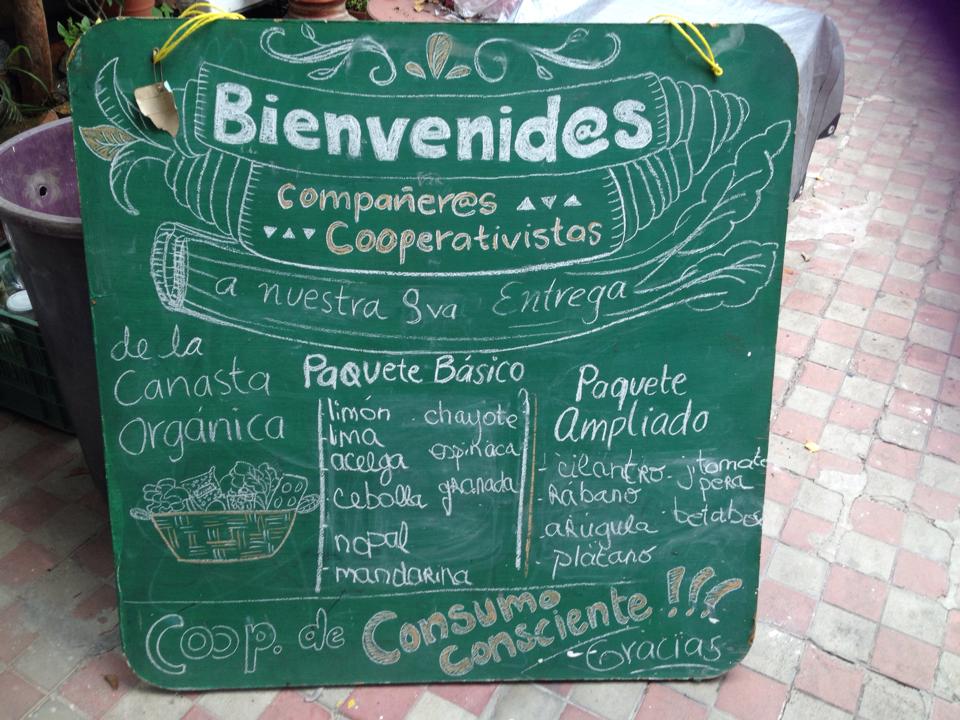 Bienvenid@s
Compañer@s
Cooperativistas
a nuestra 8va Entrega
de la
Canasta
Orgánica
Paquete Básico
limón
lima
acelga
cebolla
nopal
mandarina
chayote
espinaca
granada
Paquete
Ampliado
cilantro
Rábano
arúgula
plátano
jitomate
pera
betabel
Coop. de Consumo
consciente!!!
Gracias